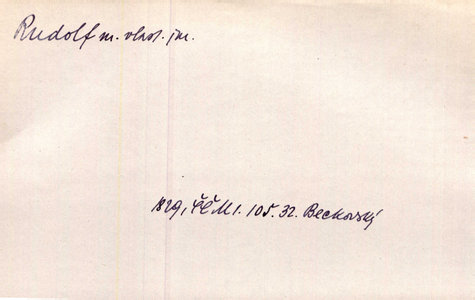 Rudolf m. vlast. jm.
1829, ČČM 1. 105. 32. Beckovský